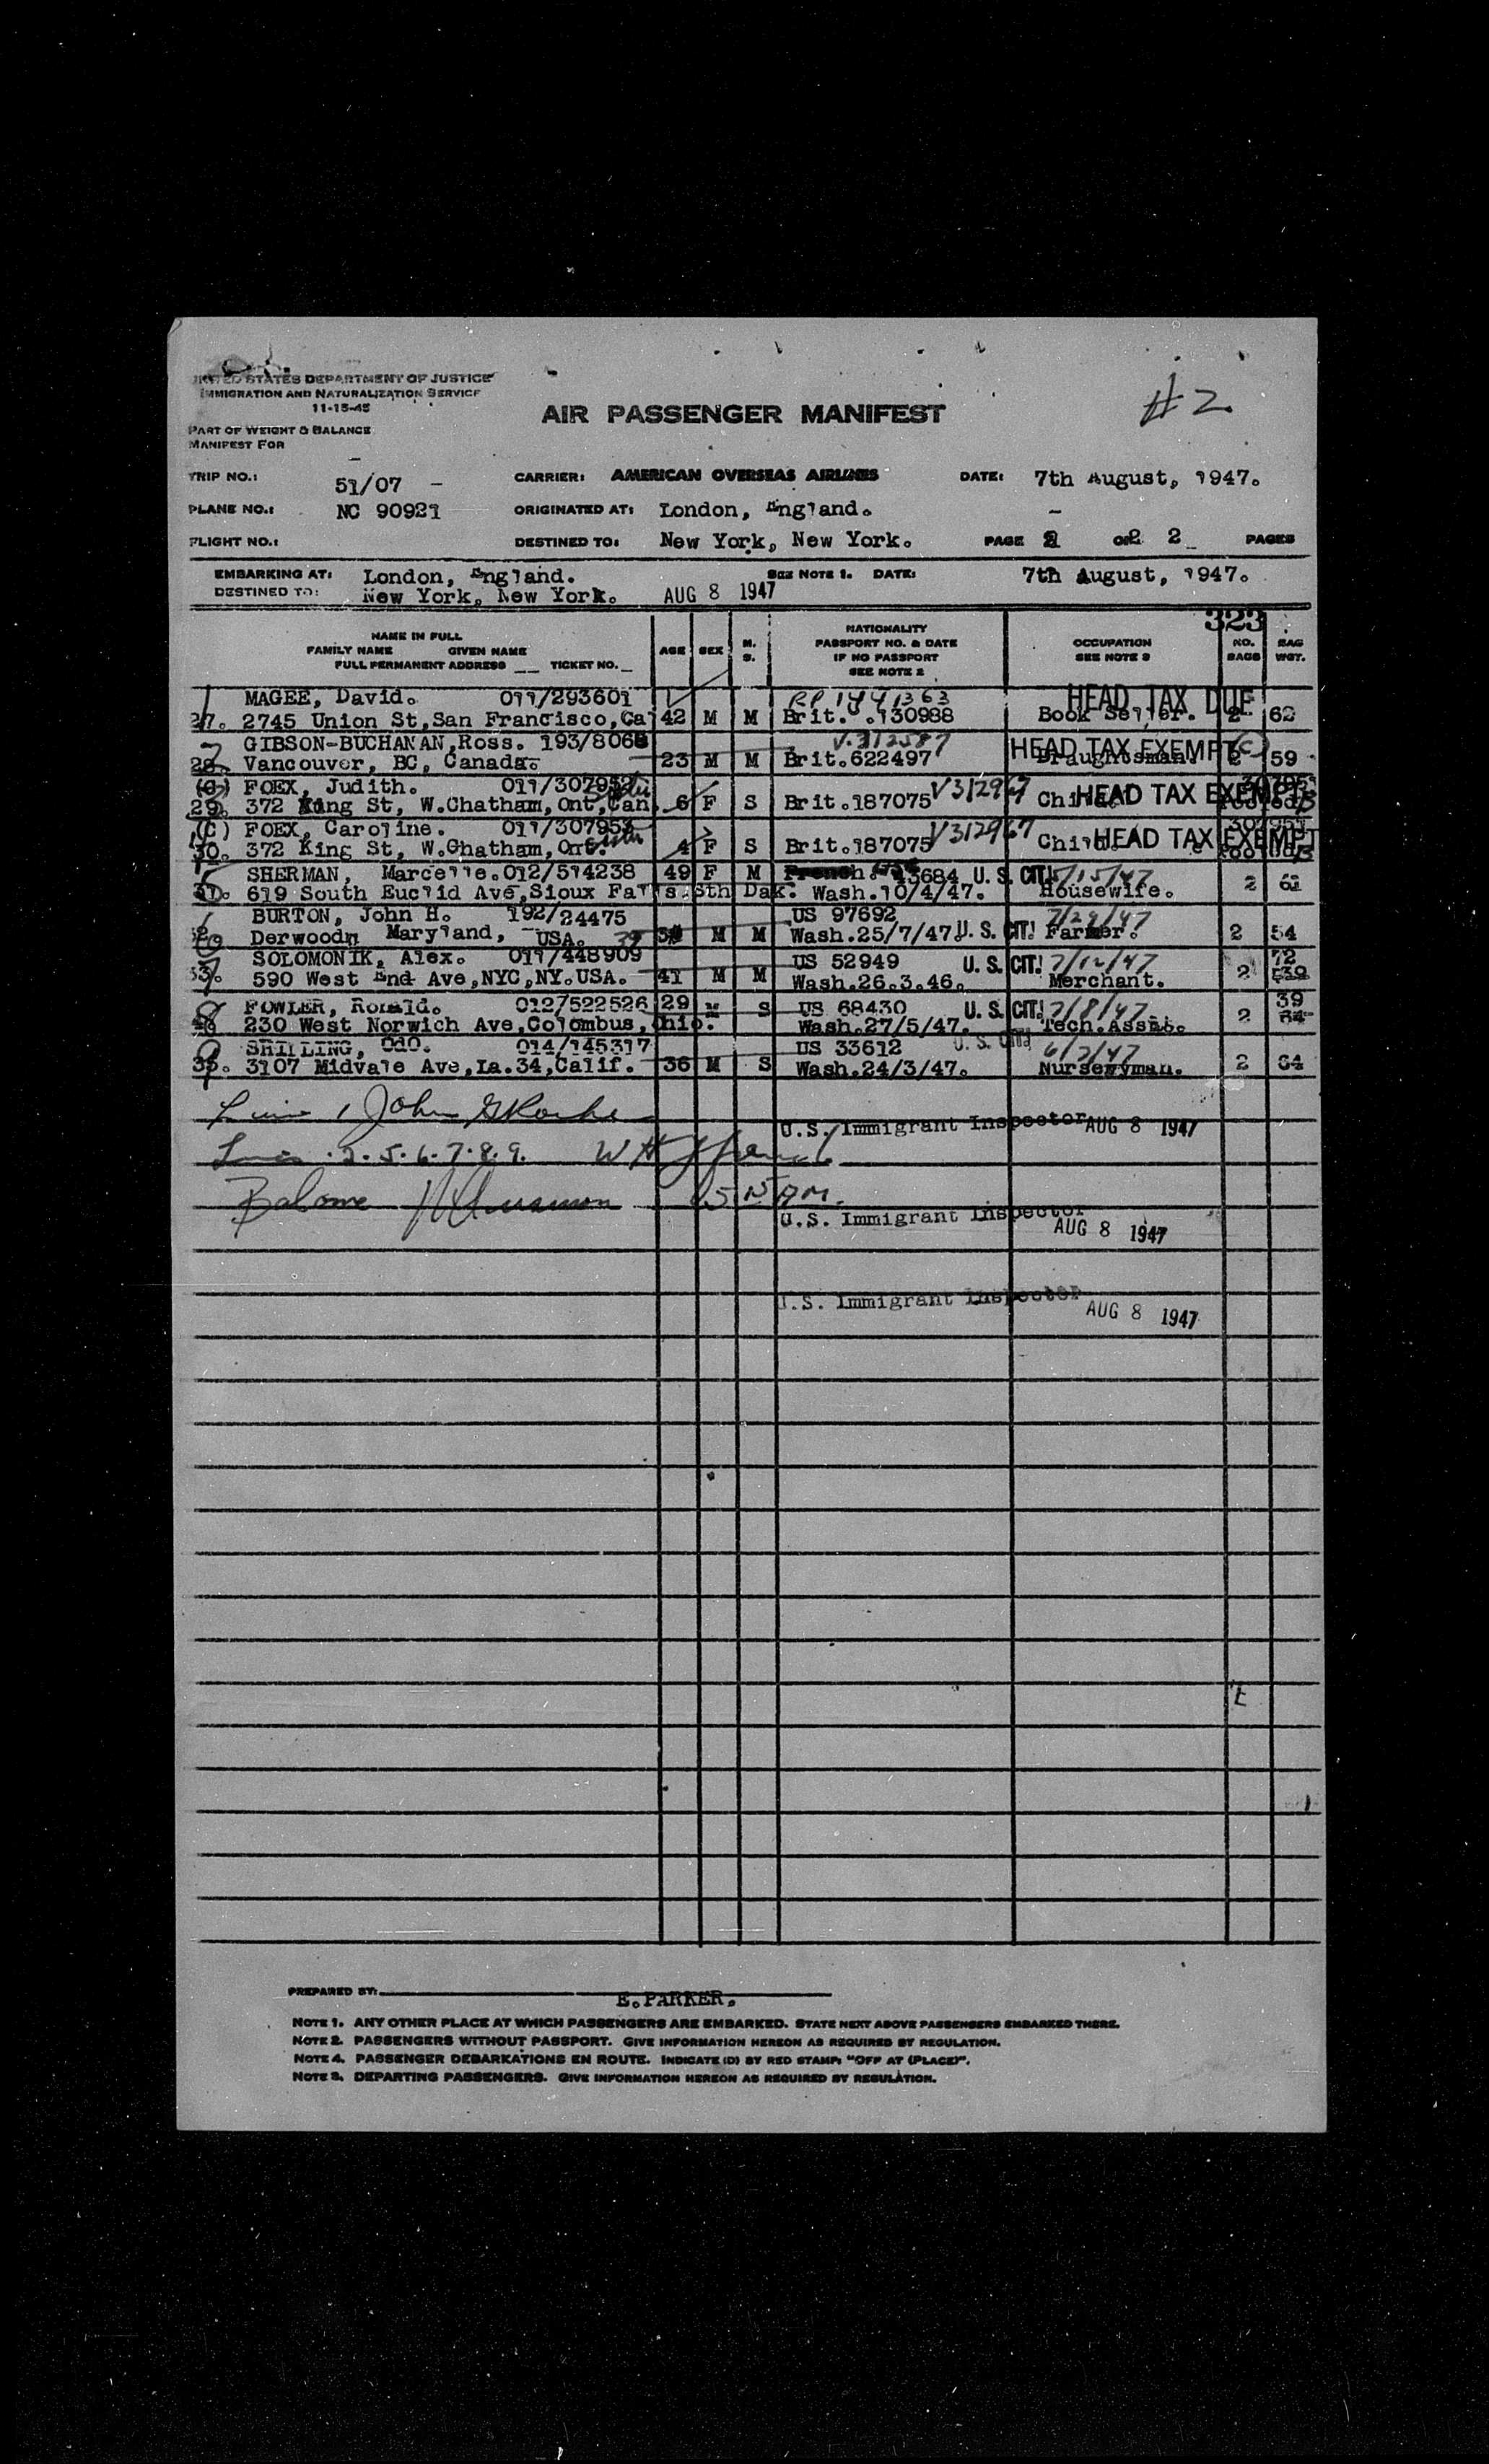 UNITED STATES DEPARTMENT OF JUSTICE
IMMIGRATION AND NATURALIZATION SERVICE
11-15-45
AIR PASSENGER MANIFEST
#2
PART OF WEIGHT & BALANCE
MANIFEST FOR
TRIP NO.: 51/07 - CARRIER: AMERICAN OVERSEAS AIRLINES DATE: 7th August, 1947.
PLANE NO.: NC 90921 ORIGINATED AT: London, England.
FLIGHT NO.: DESTINED TO: New York, New York. PAGE 2 OF 2 2 PAGES
EMBARKING AT: London, England. SEE NOTE 1. DATE: 7th August, 1947.
DESTINED TO: New York, New York. AUG 8 1947
323
NAME IN FULL
FAMILY NAME GIVEN NAME
FULL PERMANENT ADDRESS TICKET NO.
AGE SEX M. S.
NATIONALITY
PASSPORT NO. & DATE
IF NO PASSPORT
SEE NOTE 2
OCCUPATION
SEE NOTE 3
NO. BAGS
BAG WGT.
1 MAGEE, David. 011/293601 RP 1441363 HEAD TAX DUE
27. 2745 Union St,San Francisco,Cal 42 M M Brit. 130988 Book Seller. 2 62
2 GIBSON-BUCHANAN,Ross. 193/8068 V.312587 HEAD TAX EXEMPT (C)
28. Vancouver, BC, Canada. 23 M M Brit.622497 Draughtsman. 2 59
(C) FOEX, Judith. 011/307952 V312967 HEAD TAX EXEMPT
29. 372 King St, W.Chatham,Ont,Can. 6 F S Brit.187075 Child.
(C) FOEX, Caroline. 011/307953 V312967 HEAD TAX EXEMPT
30. 372 King St, W.Chatham,Ont. 4 F S Brit.187075 Child.
5 SHERMAN, Marcelle.012/514238 49 F M French. 43684 U. S. CIT. 5/15/47
31. 619 South Euclid Ave,Sioux Falls.Sth Dak. Wash.10/4/47. Housewife. 2 61
6 BURTON, John H. 192/24475 US 97692 7/29/47
Derwood Maryland, USA. 39 M M Wash.25/7/47. U. S. CIT. Farmer. 2 54
7 SOLOMONIK, Alex. 011/448909 US 52949 U. S. CIT. 7/12/47 72
33. 590 West End Ave,NYC,NY.USA. 41 M M Wash.26.3.46. Merchant. 2
8 FOWLER, Ronald. 012/522526 29 M S US 68430 U. S. CIT. 7/8/47 39
230 West Norwich Ave,Colombus,Ohio. Wash.27/5/47. Tech.Assnt. 2 34
9 SHILLING, Odo. 014/145317 US 33612 6/2/47
35. 3107 Midvale Ave,La.34,Calif. 36 M S Wash.24/3/47. Nurseryman. 2 64
Line 1 John
U.S. Immigrant Inspector AUG 8 1947
Lines .2.5.6.7.8.9.
Balance
U.S. Immigrant Inspector
AUG 8 1947
U.S. Immigrant Inspector
AUG 8 1947
PREPARED BY: E.PARKER.
NOTE 1. ANY OTHER PLACE AT WHICH PASSENGERS ARE EMBARKED. STATE NEXT ABOVE PASSENGERS EMBARKED THERE.
NOTE 2. PASSENGERS WITHOUT PASSPORT. GIVE INFORMATION HEREON AS REQUIRED BY REGULATION.
NOTE 4. PASSENGER DEBARKATIONS EN ROUTE. INDICATE (D) BY RED STAMP: "OFF AT (PLACE)".
NOTE 3. DEPARTING PASSENGERS. GIVE INFORMATION HEREON AS REQUIRED BY REGULATION.